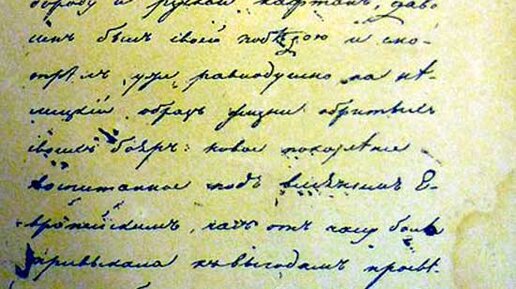 бороду и руской кафтанъ, дово
ленъ былъ своей побѣдою и смо-
трѣлъ уже равнодушно на нѣ-
мецкій образъ жизни обритыхъ
своихъ бояръ: новое поколѣніе
воспитанное подъ вліяніемъ Е-
вропейскимъ, часъ отъ часу болѣ
привыкало къ выгодамъ просвѣ-